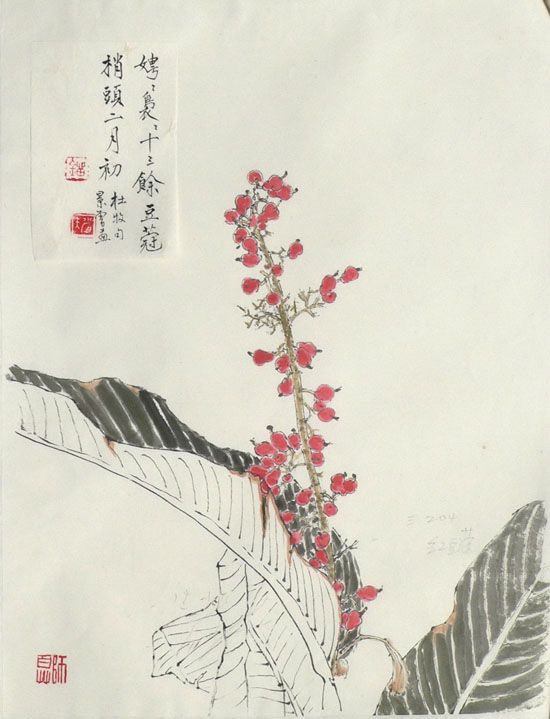 娉〻裊〻十三餘豆蔻
梢頭二月初
杜牧句
景書画
三 204
红豆蔻